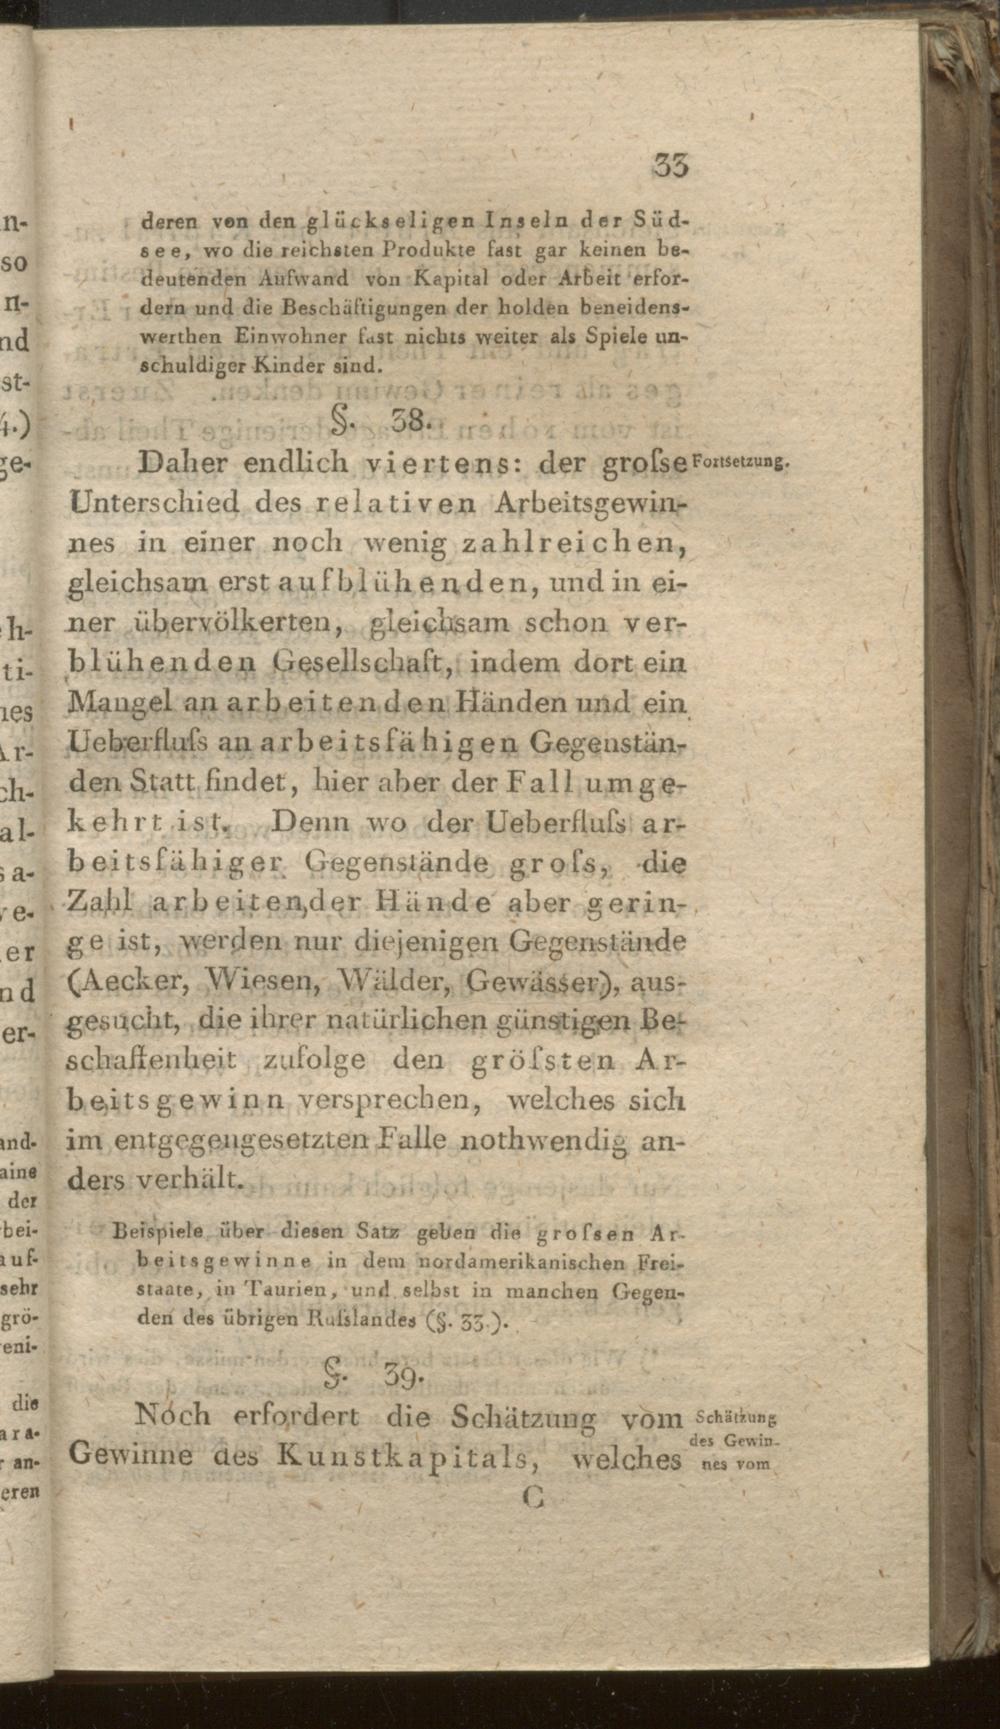 33
deren von den glückseligen Inseln der Süd-
see, wo die reichsten Produkte fast gar keinen be-
deutenden Aufwand von Kapital oder Arbeit erfor-
dern und die Beschäftigungen der holden beneidens-
werthen Einwohner fast nichts weiter als Spiele un-
schuldiger Kinder sind.
§. 38.
Daher endlich viertens: der groſse Fortsetzung.
Unterschied des relativen Arbeitsgewin-
nes in einer noch wenig zahlreichen,
gleichsam erst aufblühenden, und in ei-
ner übervölkerten, gleichsam schon ver-
blühenden Gesellschaft, indem dort ein
Mangel an arbeitenden Händen und ein
Ueberfluſs an arbeitsfähigen Gegenstän-
den Statt findet, hier aber der Fall umge-
kehrt ist. Denn wo der Ueberfluſs ar-
beitsfähiger Gegenstände groſs, die
Zahl arbeitender Hände aber gerin-
ge ist, werden nur diejenigen Gegenstände
(Aecker, Wiesen, Wälder, Gewässer), aus-
gesucht, die ihrer natürlichen günstigen Be-
schaffenheit zufolge den gröſsten Ar-
beitsgewinn versprechen, welches sich
im entgegengesetzten Falle nothwendig an-
ders verhält.
Beispiele über diesen Satz geben die groſsen Ar-
beitsgewinne in dem nordamerikanischen Frei-
staate, in Taurien, und selbst in manchen Gegen-
den des übrigen Ruſslandes (§. 33.).
§. 39.
Noch erfordert die Schätzung vom
Gewinne des Kunstkapitals, welches
Schätzung
des Gewin-
nes vom
C